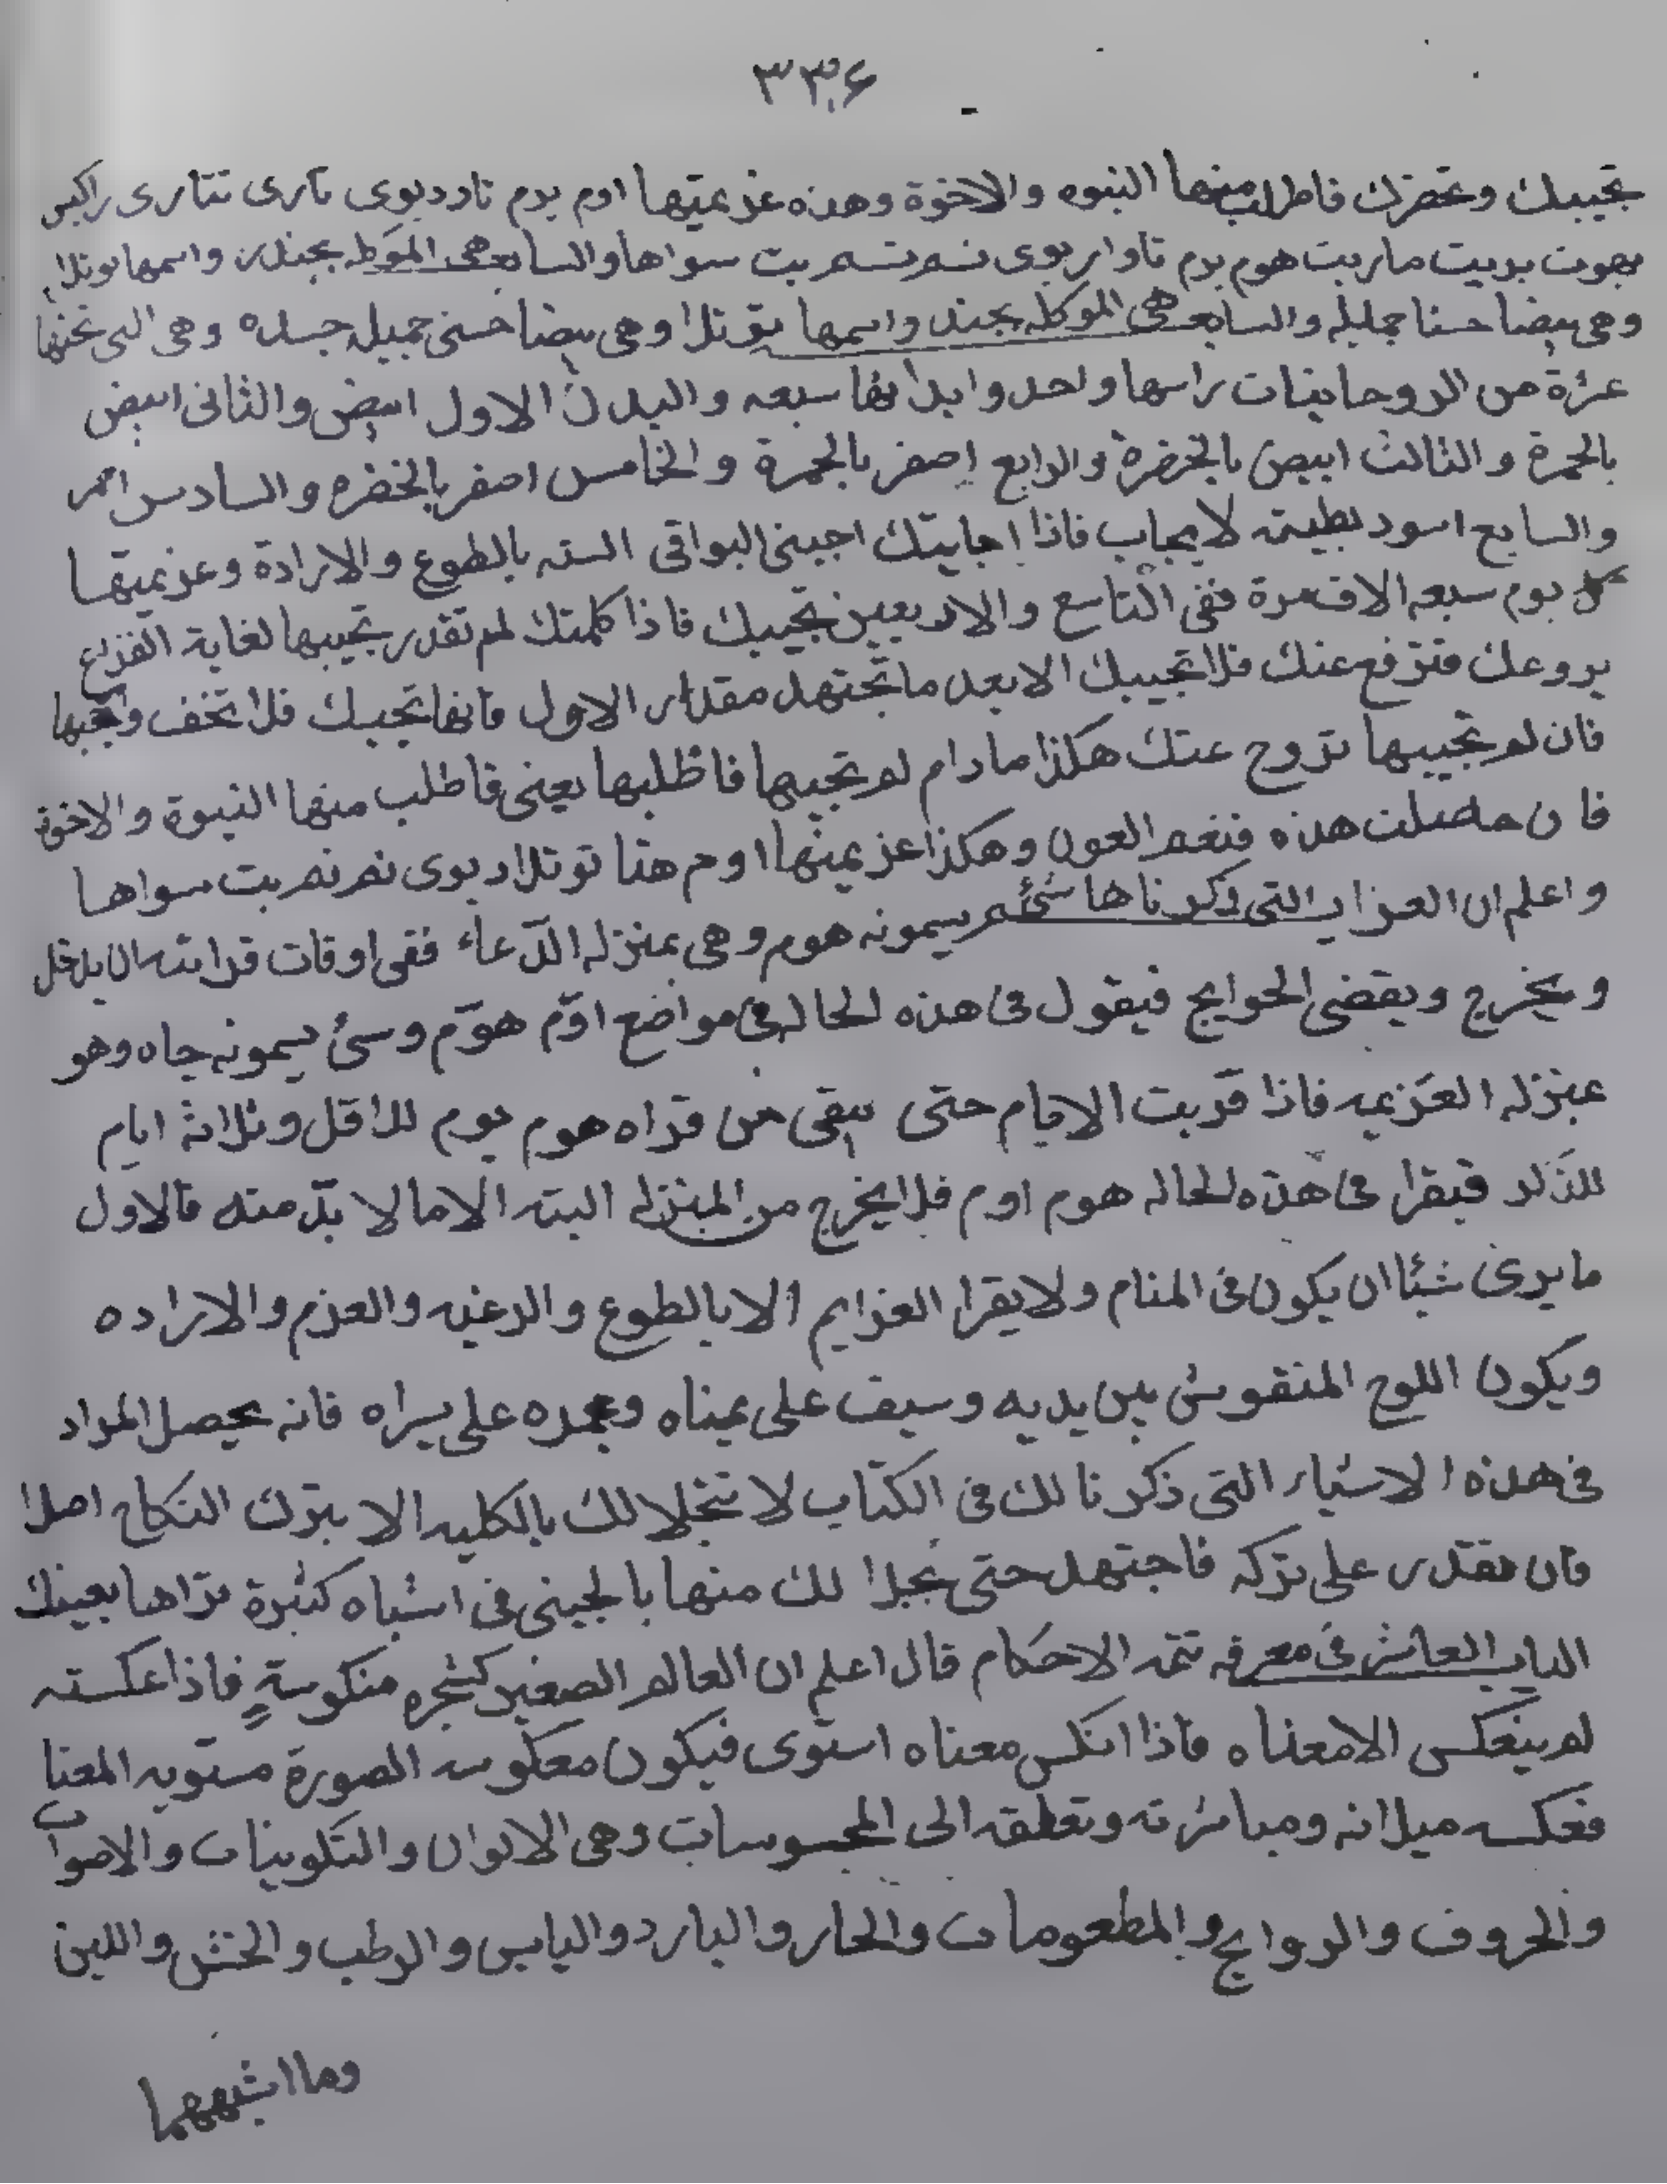 ٣٣٤
تجيبك وتحضرك فاطلب منها البنوه والاخوة وهذه عزيمتها اوم برم تارديوى تارى تتارى راكس
بهوت بربيت ماربت هوم برم تاوار بوى نسم نسم بت سواها والسابعه هى الموكله بجندر واسمها توتلا
وهى بيضا حسنا جميله والسابعه هى الموكله بجند واسمها توتلا وهى بيضا حسنى جميله جسده وهى التى تحتها
عزة من الروحانيات راسها واحد وابدانها سبعه والبدن الاول ابيض والثانى ابيض
بالحمرة والثالث ابيض بالخضرة والرابع اصفر بالحمرة والخامس اصفر بالخضره والسادس احمر
والسابع اسود بطيئه لايجاب فاذا اجابتك اجبنى البواقى السته بالطوع والارادة وعزيمتها
كل يوم سبعه الاف مرة ففى التاسع والاربعين تجيبك فاذا كلمتك لم تقدر تجيبها لغاية الفزع
يروعك فترفع عنك فلا تجيبك الا بعد ما تجتهد مقدار الاول فانها تجيبك فلا تخف وتجبها
فان لم تجيبها تروح عنك هكذا مادام لم تجيبها فاطلبها يعنى فاطلب منها البنوة والاخوة
فان حصلت هذه فنعم العون وهكذا عزيمتها اوم هتا توتلا ديوى نم نم بت سواها
واعلم ان العزايم التى ذكرناها شئ يسمونه هوم وهى بمنزله الدعاء ففى اوقات قراءته ان يدخل
ويخرج ويقضى الحوايج فيقول فى هذه الحاله فى مواضع اوم هوم وسئ يسمونه جاه وهو
بمنزله العزيمه فاذا قربت الايام حتى يبقى من قراه هوم يوم للاقل وثلاثة ايام
للزلد فيقرا فى هذه الحاله هوم اوم فلا يخرج من المنزله البته الا ما لا بد منه فالاول
ما يرى شيئا ان يكون فى المنام ولا يقرا العزايم الا بالطوع والرغبه والعزم والاراده
ويكون اللوح المنقوش بين يديه وسيف على يمناه وغمده على يسراه فانه يحصل المراد
فى هذه الاشياء التى ذكرنا لك فى الكتاب لا تتجلا لك بالكليه الا بترك النكاح اصلا
فان تقدر على تركه فاجتهد حتى تجلا لك منها بالجينى فى اشباه كثيرة تراها بعينك
الباب العاشر فى معرفه تتمه الاحكام قال اعلم ان العالم الصغير كشجره منكوسةٍ فاذا عكسته
لم ينعكس الا معناه فاذا انكس معناه استوى فيكون معكوسه الصورة مستويه المعنا
فعكسه ميلانه ومباشرته وتعلقه الى المحسوسات وهى الالوان والتكوينات والاصوات
والحروف والروايح والمطعومات والحار والبارد واليابس والرطب والخشن واللين
وما اشبههما